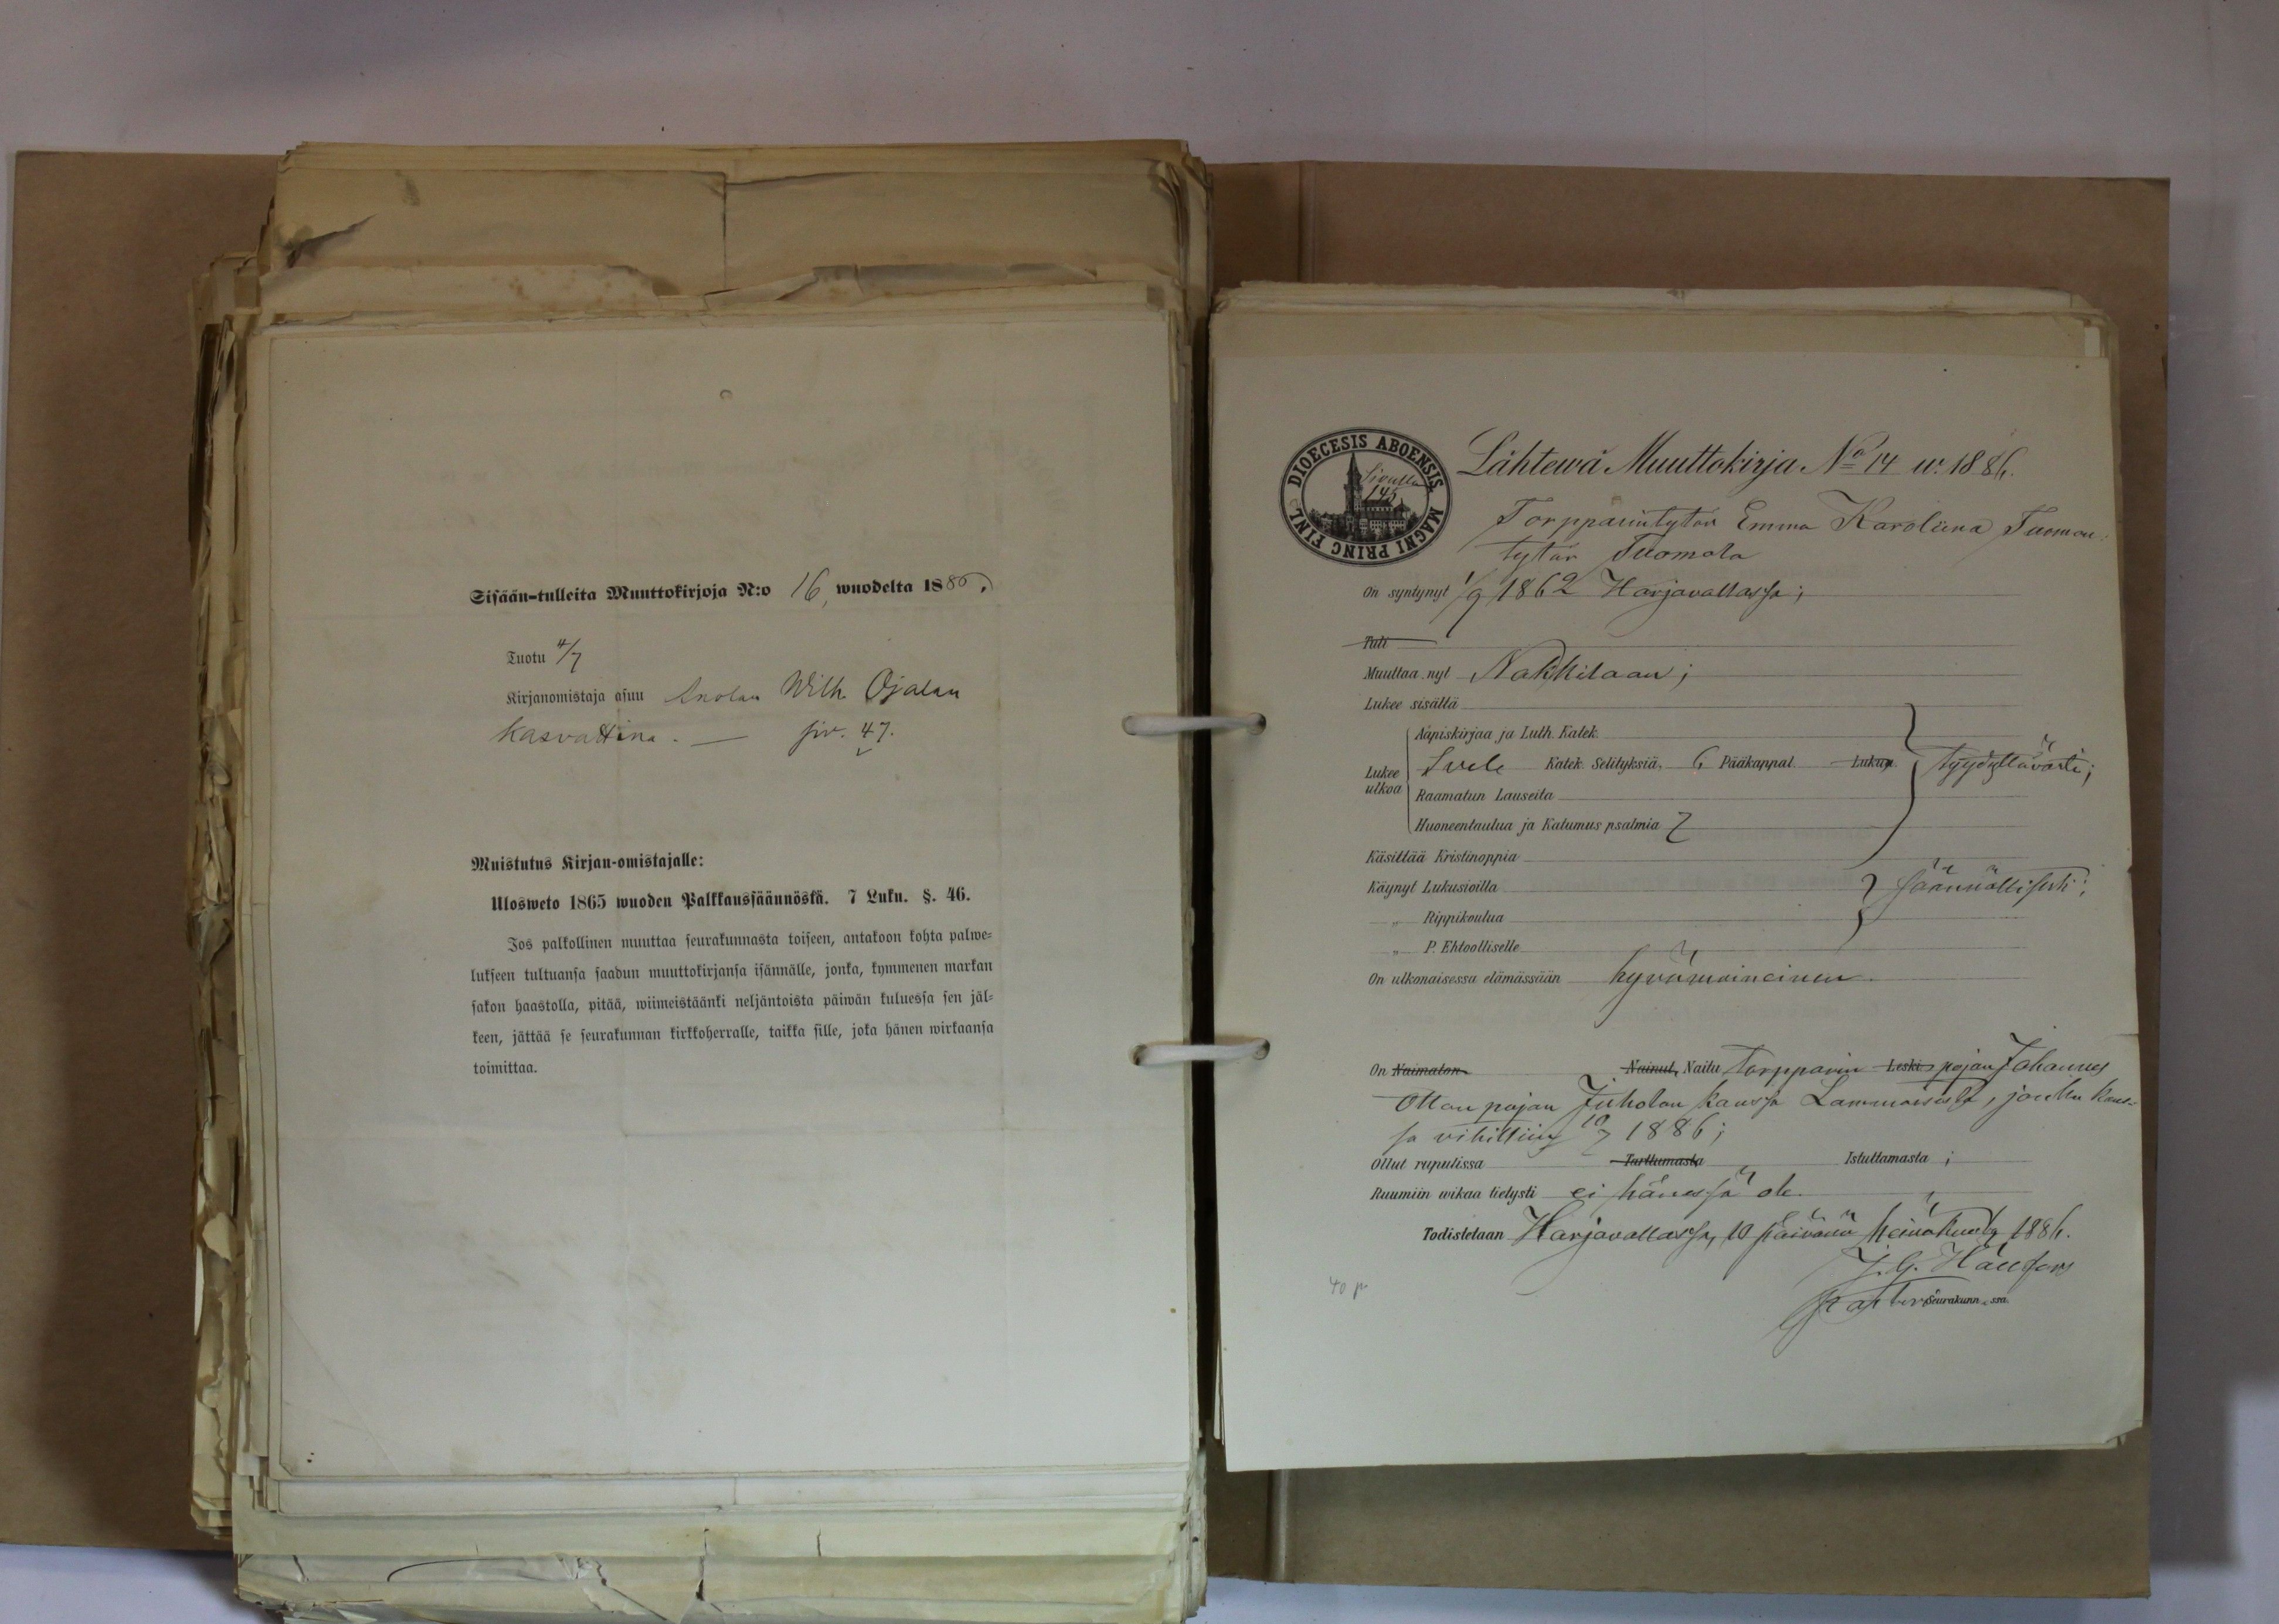 Sisään-tulleita Muuttokirjoja N:o 16, wuodelta 1886.
Tuotu 4/7
Kirjanomistaja asuu Anolan Wilh. Ojalan
kasvattina. — siv. 47.
Muistutus Kirjan-omistajalle:
Ulosweto 1865 wuoden Palkkaussäännöstä. 7 Luku. §. 46.
Jos palkollinen muuttaa seurakunnasta toiseen, antakoon kohta palwe-
lukseen tultuansa saadun muuttokirjansa isännälle, jonka, kymmenen markan
sakon haastolla, pitää, wiimeistäänki neljäntoista päiwän kuluessa sen jäl-
keen, jättää se seurakunnan kirkkoherralle, taikka sille, joka hänen wirkaansa
toimittaa.
DIOECESIS ABOENSIS MAGNI PRINC FINL
Sivulla
145
Lähtewä Muuttokirja No 14 w. 1886.
Torpparintytär Emma Karoliina Tuoman
tytär Tuomola
On syntynyt 1/9 1862 Harjavallassa;
Tuli
Muuttaa nyt Nakkilaan;
Lukee sisältä
Aapiskirjaa ja Luth. Katek.
Lukee ulkoa Svele Katek. Selityksiä, 6 Pääkappal. Lukua. tyydyttävästi;
Raamatun Lauseita
Huoneentaulua ja Katumus psalmia 7
Käsittää Kristinoppia
Käynyt Lukusioilla säännöllisesti;
„ Rippikoulua
„ P. Ehtoolliselle
On ulkonaisessa elämässään hyvämaineinen.
On Naimaton Nainut, Naitu Torpparin Leski pojan Johannes
Ottonpojan Juholan kanssa Lammaisista, jonka kans-
sa vihittiin 10/7 1886;
Ollut rupulissa Tarttumasta Istuttamasta ;
Ruumiin wikaa tietysti ei hänessä ole.
Todistetaan Harjavallassa, 10 päivänä heinäkuuta 1886.
J. G. Hällfors
Pastori Seurakunn. ssa.
40 p